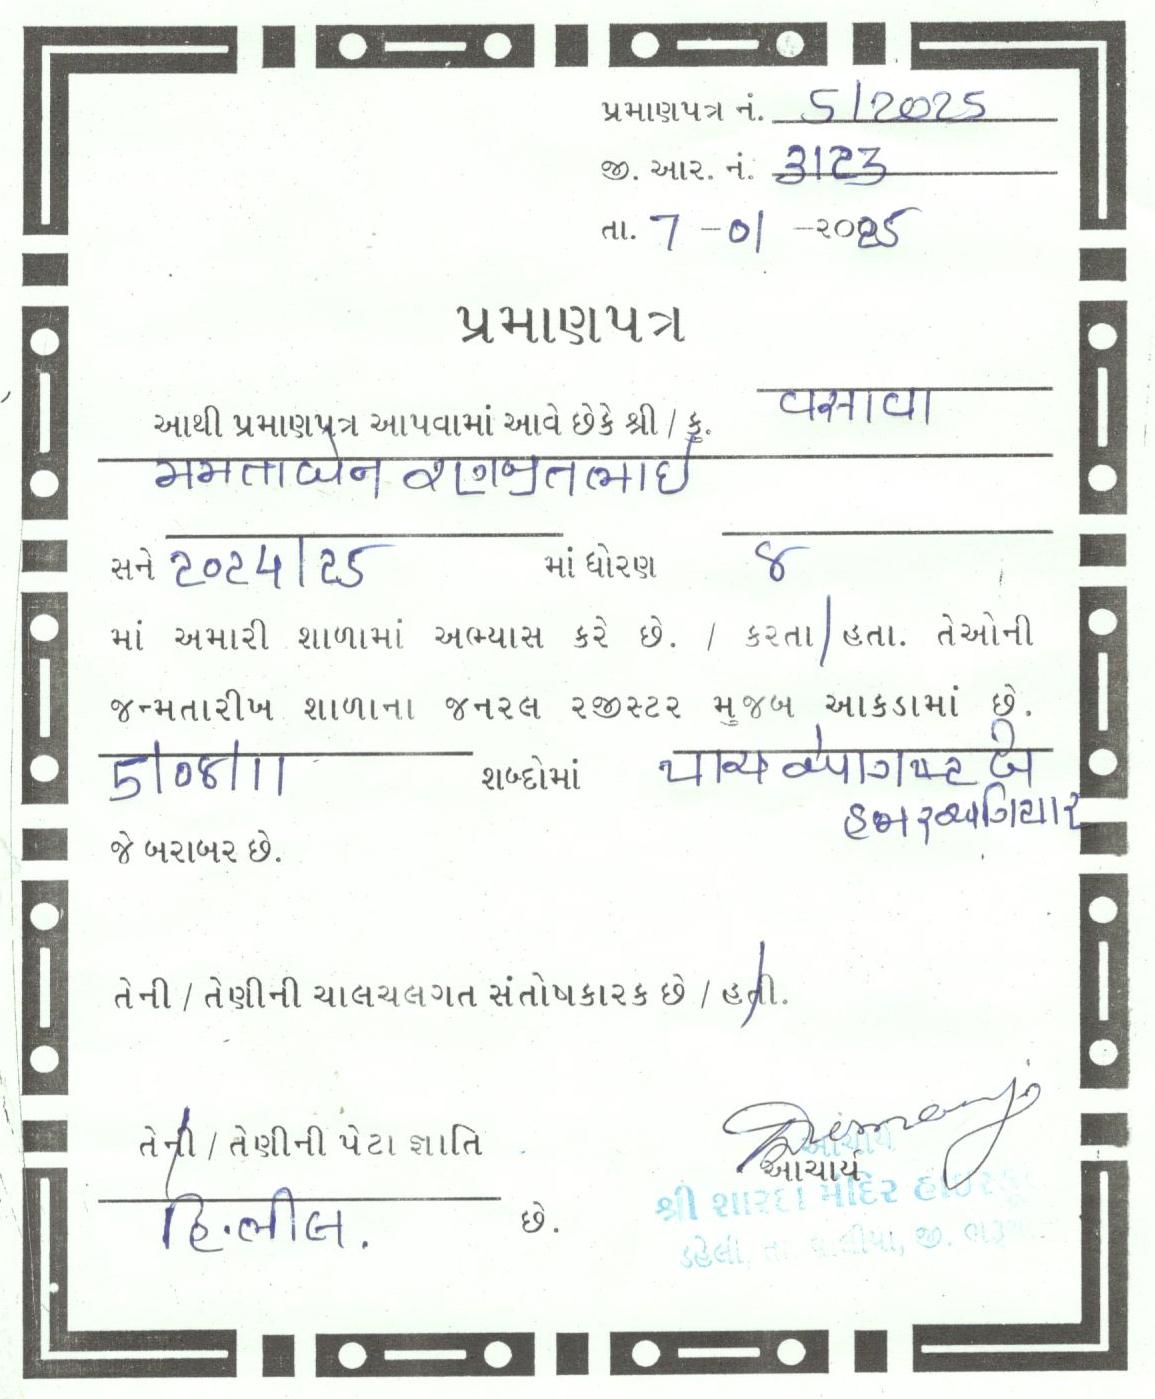 પ્રમાણપત્ર નં. 5/2025
જી. આર. નં. 3123
તા. 7 -01 -૨૦૨5
પ્રમાણપત્ર
આથી પ્રમાણપત્ર આપવામાં આવે છેકે શ્રી / કુ. વસાવા
મમતાબેન રણજીતભાઈ
સને 2024/25 માં ધોરણ ૪
માં અમારી શાળામાં અભ્યાસ કરે છે. / કરતા હતા. તેઓની
જન્મતારીખ શાળાના જનરલ રજીસ્ટર મુજબ આકડામાં છે.
5/08/11 શબ્દોમાં પાચ ઓગષ્ટ બે
હજાર અગિયાર
જે બરાબર છે.
તેની / તેણીની ચાલચલગત સંતોષકારક છે / હતી.
તેની / તેણીની પેટા જ્ઞાતિ
હિ.ભીલ. છે.
આચાર્ય
આચાર્ય
શ્રી શારદા મંદિર હાઇસ્કૂલ
ડહેલી, તા. વાલીયા, જી. ભરૂચ